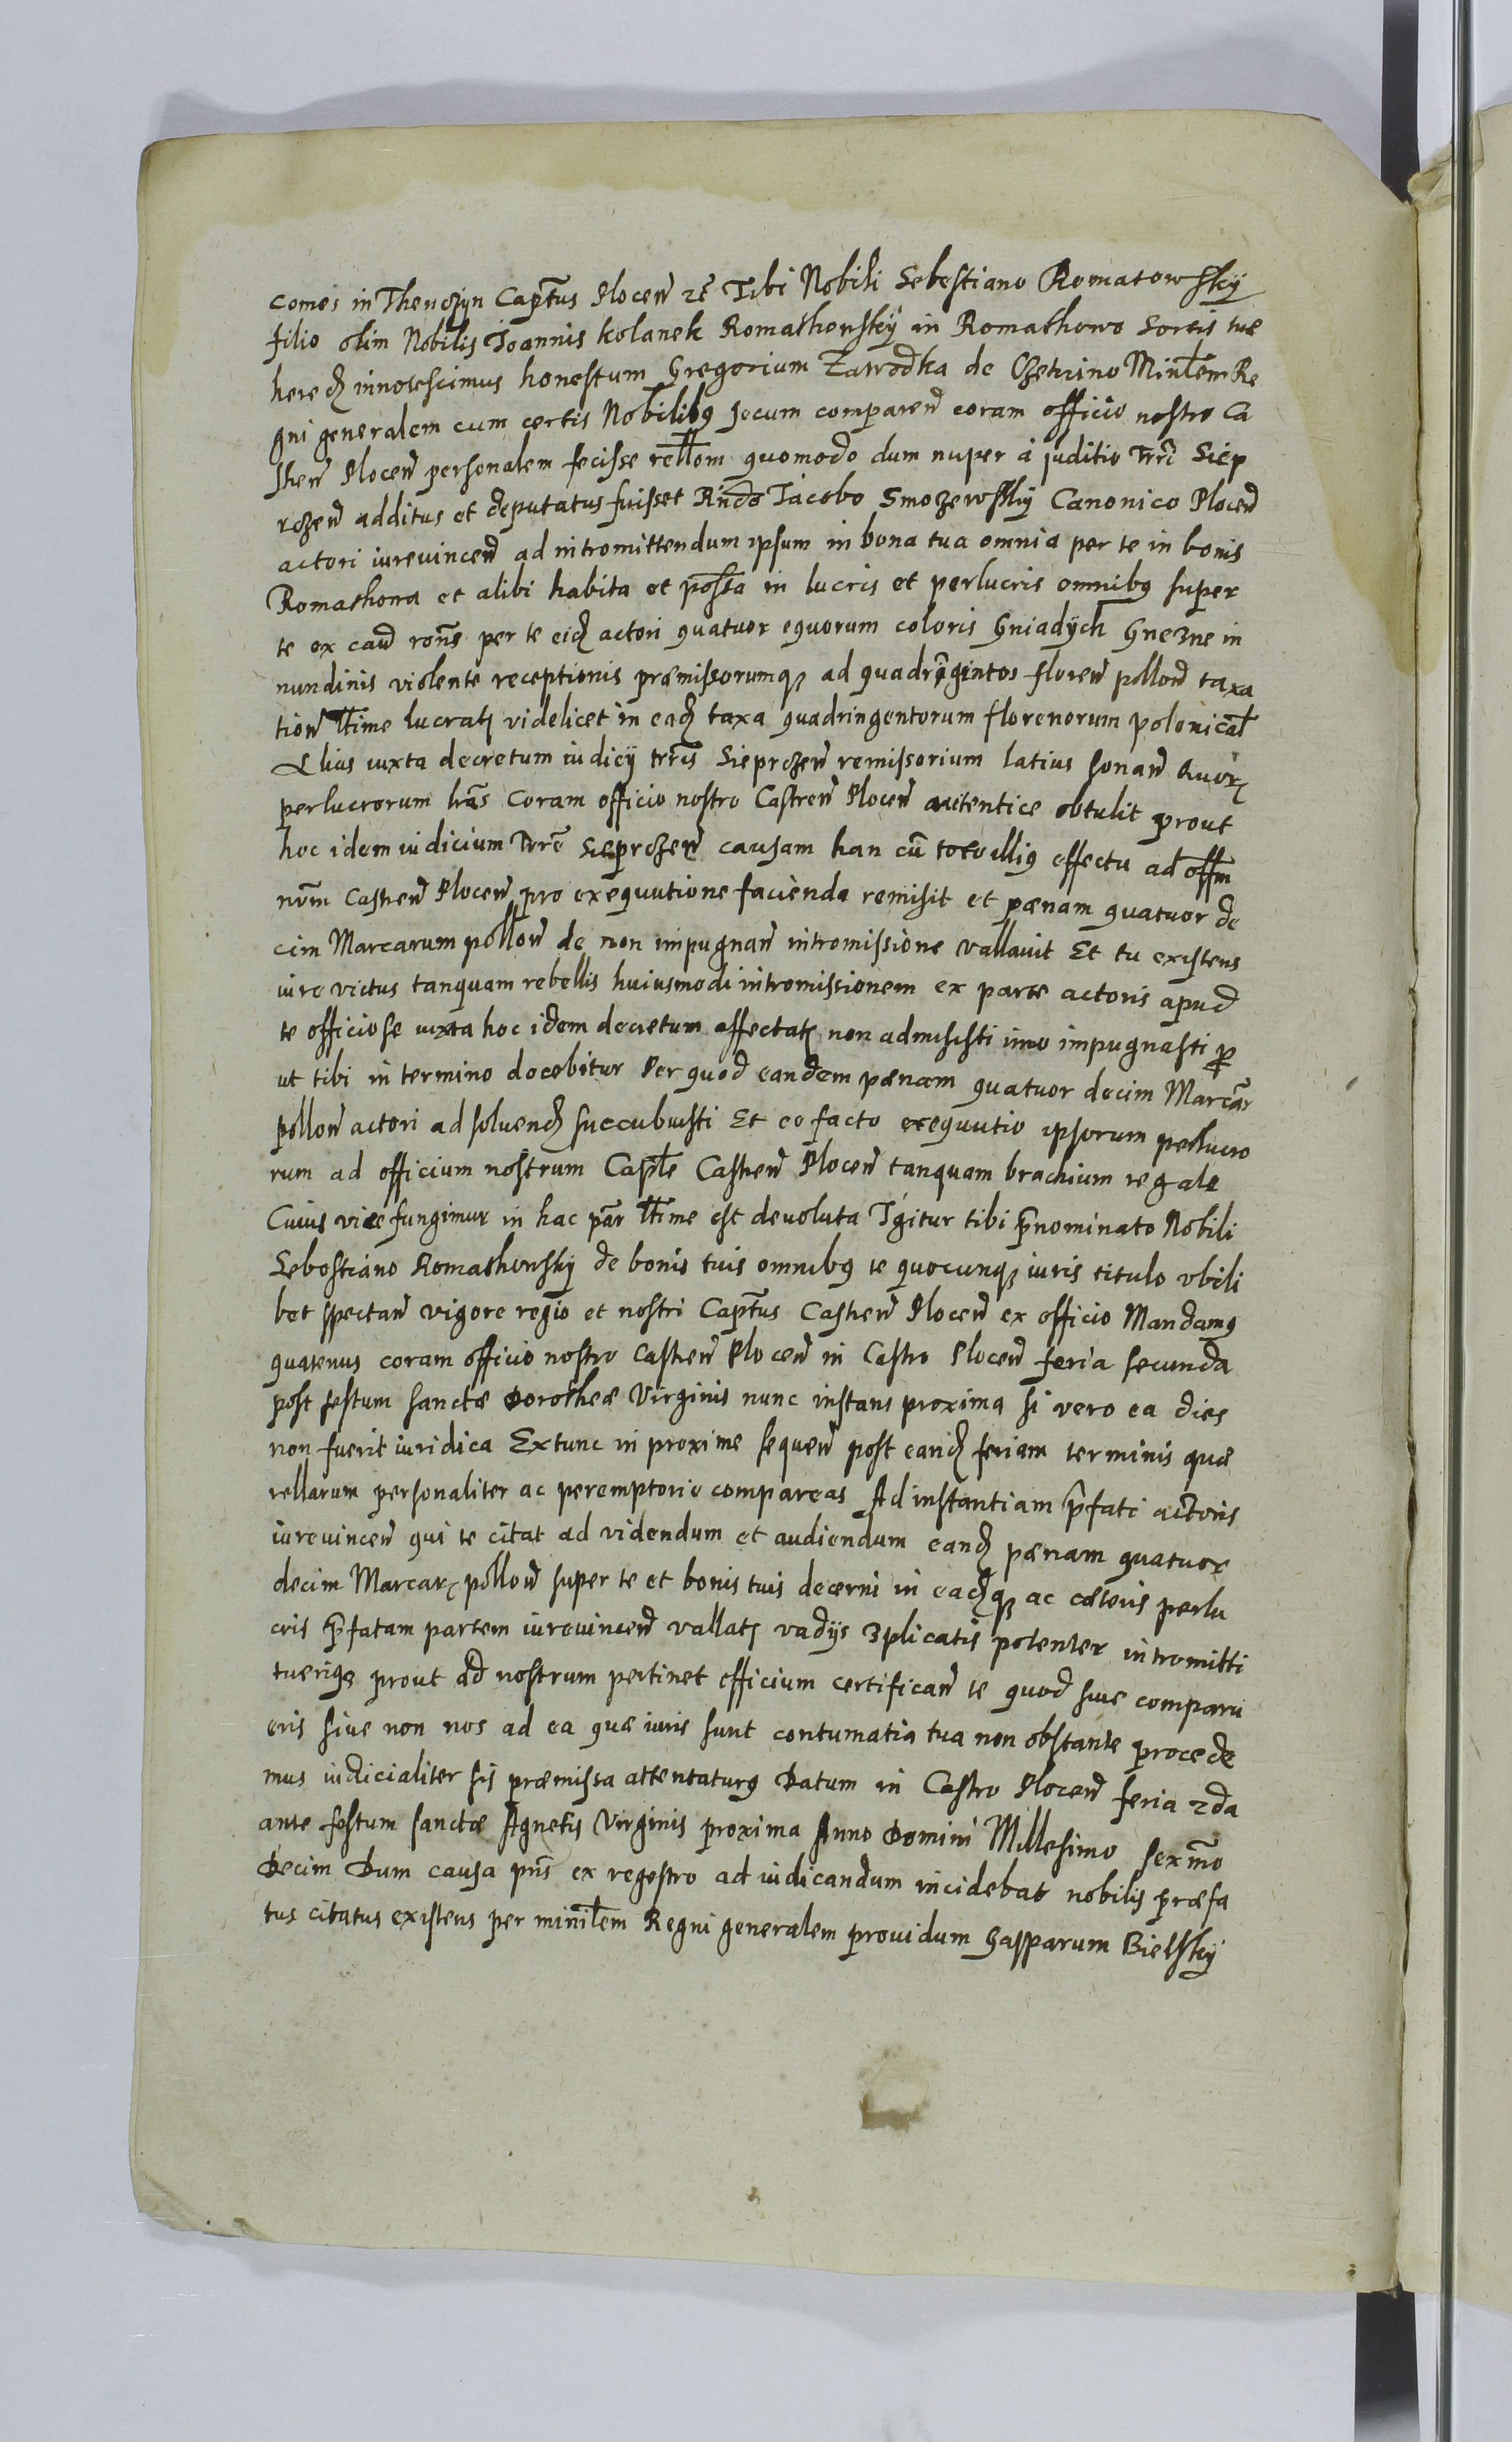 Comes in Thenczyn Capt̃us Plocen̄ etc̃ Tibi Nobili Sebestiano Romatowskÿ
filio olim Nobilis Joannis kolanek Romathowskÿ in Romathowo Sortis tuæ
hered̨ innotescimus honestum Gregorium Zawodka de Ozetrino Minl̃em Re
gni generalem cum certis Nobilibꝯ secum comparen̄ coram officio nostro Ca
stren̄ Plocen̄ personalem fecisse rel̃lom̃ quomodo dum nuper à juditio Trr̃i Siep
rczen̄ additus et deputatus fuisset Rn̄do Jacobo Smozewskÿ Canonico Plocen̄
actori iurevincen̄ ad intromittendum ipsum in bona tua omnia per te in bonis
Romathowa et alibi habita et poss̃a in lucris et perlucris omnibꝯ super
te ex cau̅ ron̄e per te eid̨ actori quatuor equorum coloris Gniadÿch Gnezne in
nundinis violente receptionis præmissorumqꝫ ad quadrĩgintos floren̄ pollon̄ taxa
tion̄ ltt̃ime lucratꝫ videlicet in ead̨ taxa quadringentorum florenorum polonical̃
Ll̃ius iuxta decretum iudicÿ trrĩs Sieprczen̄ remissorium latius sonan̄ Quorꝫ
perlucrorum lrãs Coram officio nostro Castren̄ Plocen̄ autentice obtulit prout
hoc idem iudicium Trrẽ Sieprczen̄ causam han cũ toto illiꝯ effectu ad off̃m
nr̃m Castren̄ Plocen̄ pro exequutione facienda remisit et pænam quatuor de
cim Marcarum pol̃lon̄ de non impugnan̄ intromissione vallauit Et tu existens
iure victus tanquam rebellis huiusmodi intromissionem ex parte actoris apud
te officiose iuxta hoc idem decretum affectatꝫ non admisisti imo impugnasti ꝓ
ut tibi in termino docebitur Per quod eandem pænam quatuor decim Marcãr
pollon̄ actori ad soluend̨ succubuisti Et eo facto exequutio ipsorum perlucro
rum ad officium nostrum Capl̃e Castren̄ Plocen̄ tanquam brachium regale
Cuius vice fungimur in hac pãr ltt̃ime est deuoluta Igitur tibi p̃nominato Nobili
Sebostiano Romathowskÿ de bonis tuis omnibꝯ te quocunqꝫ iuris titulo vbili
bet spectan̄ vigore regio et nostri Capt̃us Castren̄ Plocen̄ ex officio Mandamꝯ
quatenus coram officio nostro Castren̄ Plocen̄ in Castro Plocen̄ feria secunda
post festum sanctæ Dorotheæ Virginis nunc instans proxima si vero ea dies
non fuerit iuridica Extunc in proxime sequen̄ post eand̨ feriam terminis quæ
rellarum personaliter ac peremptorie compareas Ad instantiam p̃fati actoris
iurevincen̄ qui te citat ad videndum et audiendum eand̨ pænam quatuor
decim Marcarꝫ pollon̄ super te et bonis tuis decerni in ead̨qꝫ ac cæteris perlu
cris p̃fatam partem iurevincen̄ vallatꝫ vadÿs 3plicatis potenter intromitti
tueriqꝫ prout ad nostrum pertinet officium certifican̄ te quod siue comparu
eris siue non nos ad ea quæ iuris sunt contumatia tua non obstante procede
mus iudicialiter sis præmissa attentaturꝯ Datum in Castro Plocen̄ feria 2da
ante festum sanctæ Agnetis Virginis proxima Anno Domini Millesimo sexm̃o
Decim Dum causa pn̄s ex regestro ad iudicandum incidebat nobilis præfa
tus citatus existens per minil̃em Regni generalem prouidum Gasparum Bielskÿ